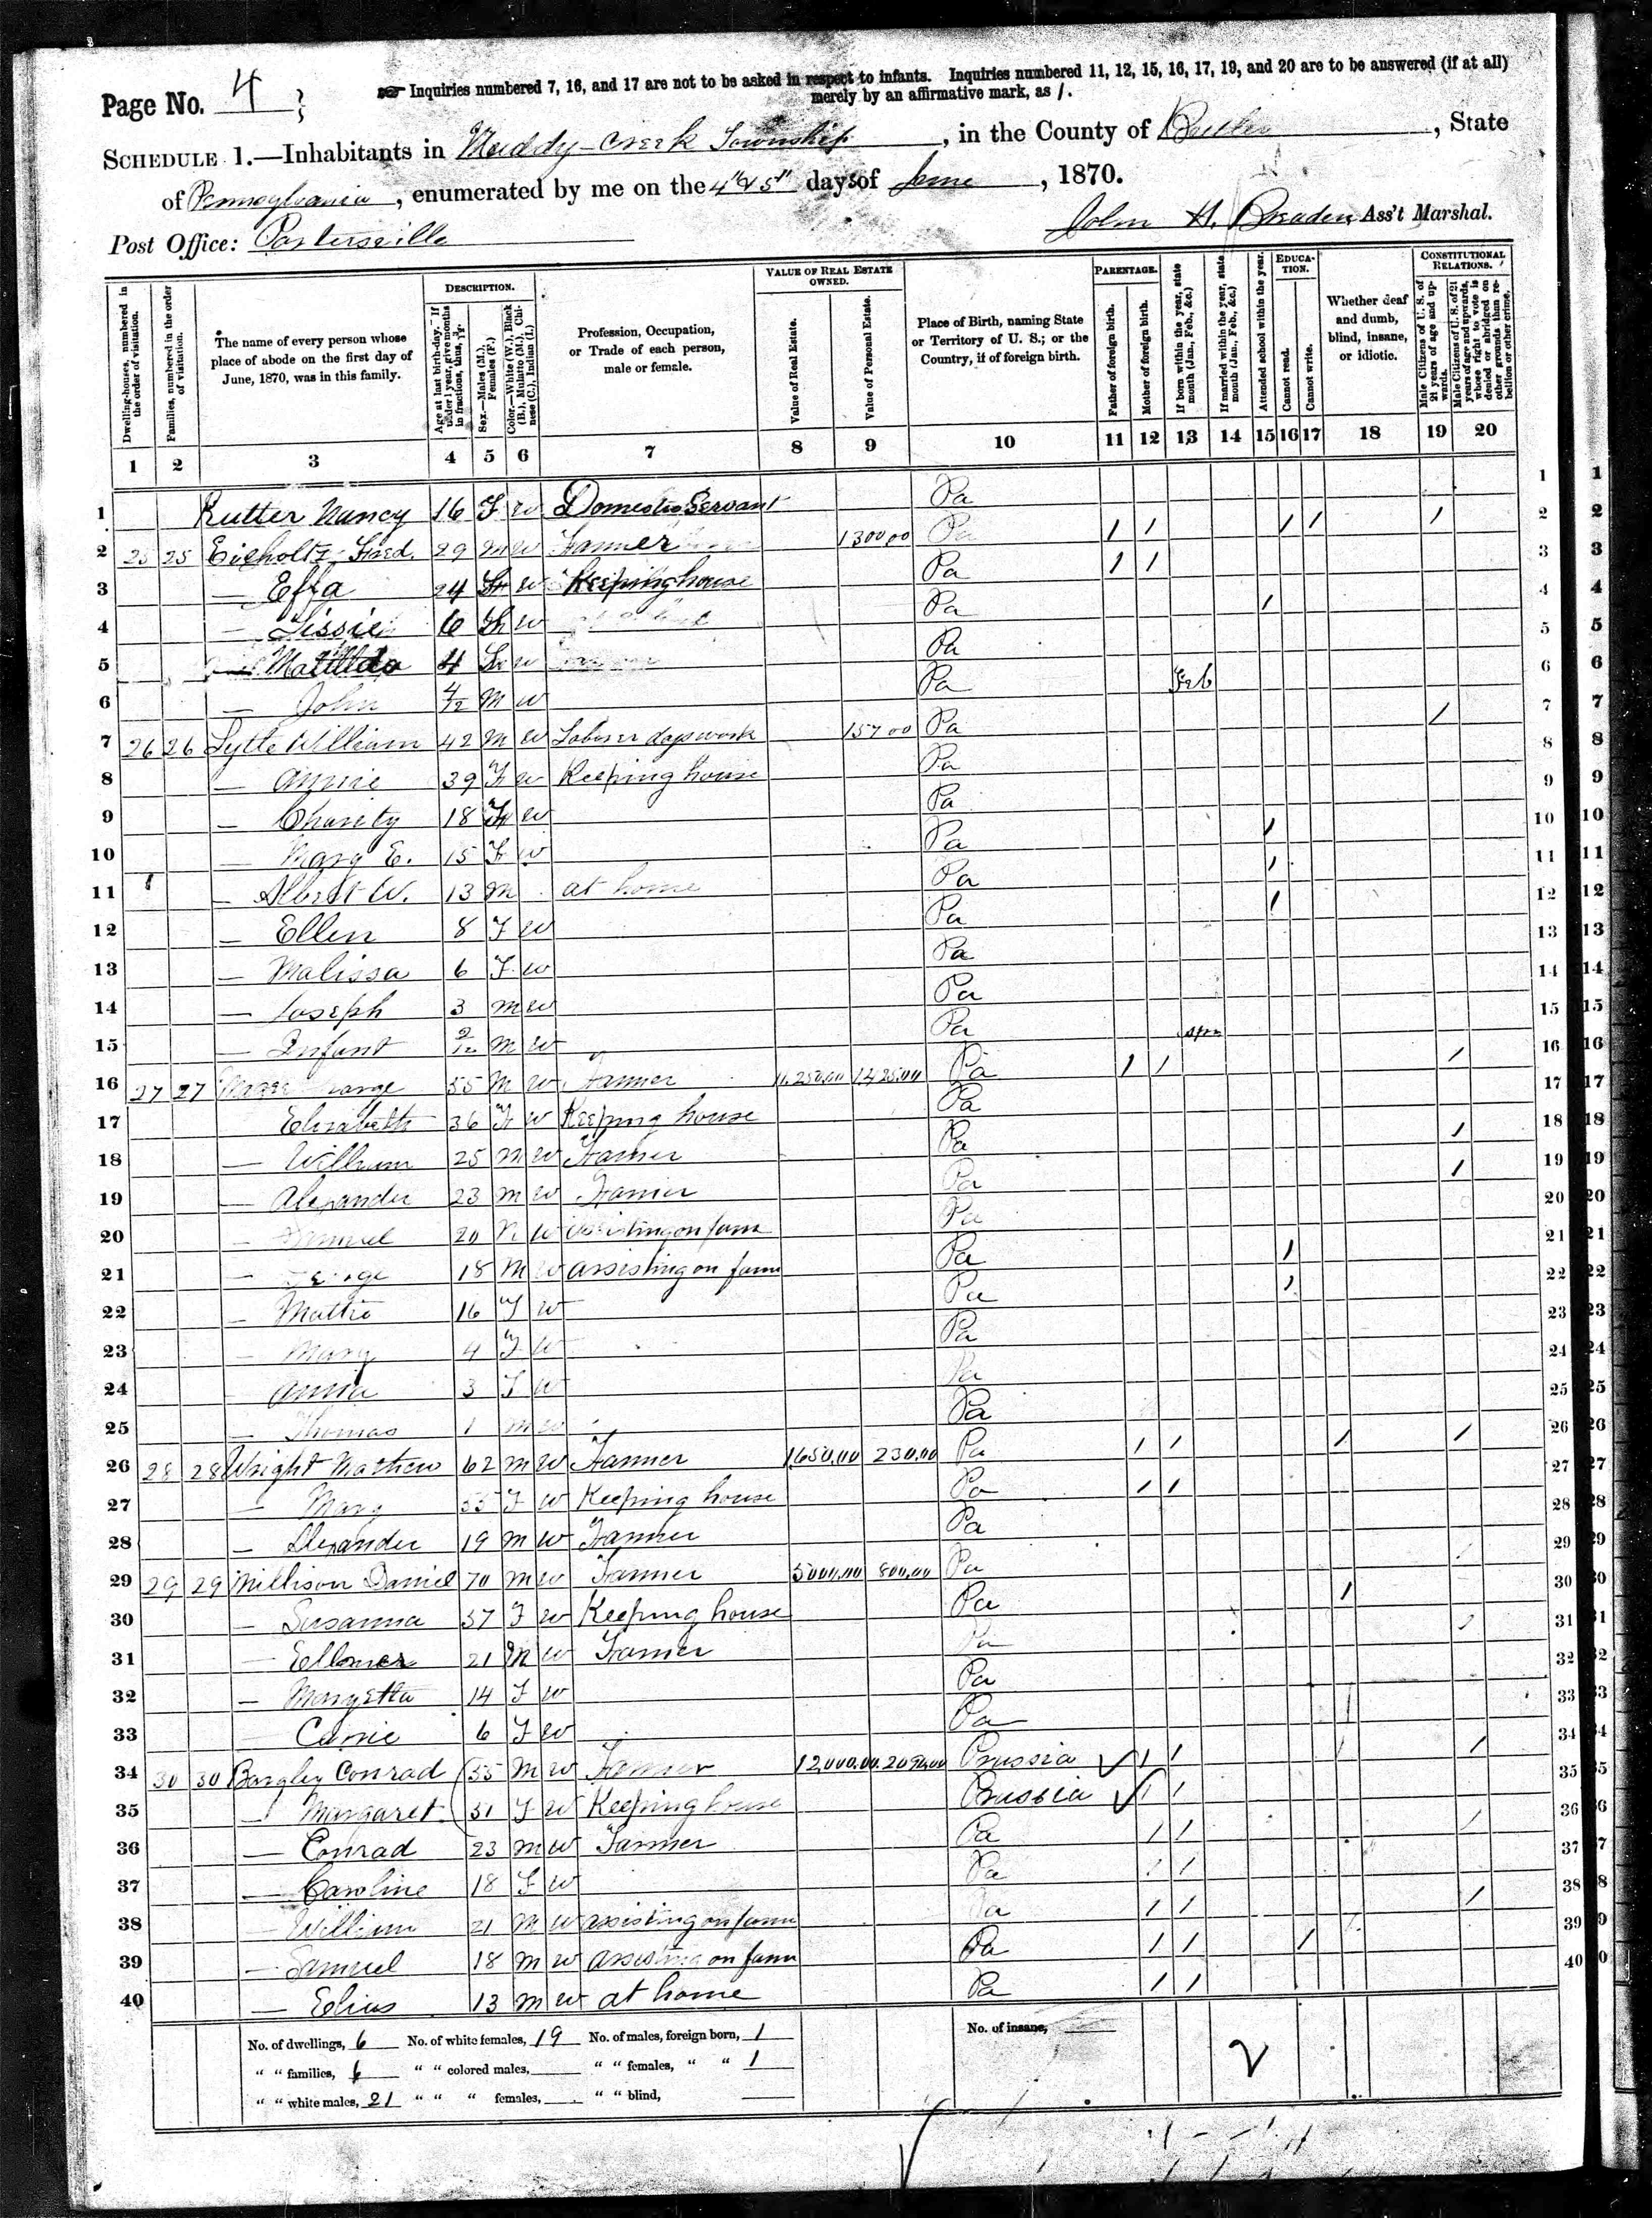 Page No. 4
Inquiries numbered 7, 16, and 17 are not to be asked in respect to infants. Inquiries numbered 11, 12, 15, 16, 17, 19, and 20 are to be answered (if at all)
merely by an affirmative mark, as /.
SCHEDULE 1.—Inhabitants in Muddy-creek Township, in the County of Butler, State
of Pennsylvania, enumerated by me on the 4" & 5" days of June, 1870.
Post Office: Portersville
John H. Breaden, Ass't Marshal.
Dwelling-houses, numbered in the order of visitation.
Families, numbered in the order of visitation.
The name of every person whose place of abode on the first day of June, 1870, was in this family.
DESCRIPTION.
Age at last birth-day. If under 1 year, give months in fractions, thus, 3/12.
Sex.—Males (M.), Females (F.)
Color.—White (W.), Black (B.), Mulatto (M.), Chinese (C.), Indian (I.)
Profession, Occupation, or Trade of each person, male or female.
VALUE OF REAL ESTATE OWNED.
Value of Real Estate.
Value of Personal Estate.
Place of Birth, naming State or Territory of U. S.; or the Country, if of foreign birth.
PARENTAGE.
Father of foreign birth.
Mother of foreign birth.
If born within the year, state month (Jan., Feb., &c.)
If married within the year, state month (Jan., Feb., &c.)
Attended school within the year.
EDUCATION.
Cannot read.
Cannot write.
Whether deaf and dumb, blind, insane, or idiotic.
CONSTITUTIONAL RELATIONS.
Male Citizens of U. S. of 21 years of age and upwards.
Male Citizens of U. S. of 21 years of age and upwards, whose right to vote is denied or abridged on other grounds than rebellion or other crime.
1 2 3 4 5 6 7 8 9 10 11 12 13 14 15 16 17 18 19 20
1 Rutter Nancy 16 F W Domestic Servant Pa 1
2 25 25 Eicholtz Fred. 29 M W Farmer 1300 00 Pa / / / / / 2
3 — Effa 24 F W Keeping house Pa / / 3
4 — Lissie 6 F W Pa / 4
5 — Matilda 4 F W Pa 5
6 — John 4/12 M W Pa Feb 6
7 26 26 Lytle William 42 M W Laborer days work 157 00 Pa / 7
8 — Annie 39 F W Keeping house Pa 8
9 — Charity 18 F W Pa 9
10 — Mary E. 15 F W Pa / 10
11 — Albert W. 13 M at home Pa / 11
12 — Ellen 8 F W Pa / 12
13 — Malissa 6 F W Pa 13
14 — Joseph 3 M W Pa 14
15 — Infant 2/12 M W Pa Apr 15
16 27 27 George 55 M W Farmer 1425.00 Pa / / / 16
17 Elizabeth 36 F W Keeping house Pa 17
18 — William 25 M W Farmer Pa / 18
19 — Alexander 23 M W Farmer Pa / 19
20 — Samuel 20 M W assisting on farm Pa 20
21 — George 18 M W assisting on farm Pa / 21
22 — Mattie 16 F W Pa / 22
23 — Mary 4 F W Pa 23
24 — Anna 3 F W Pa 24
25 — Thomas 1 M W Pa 25
26 28 28 Wright Mathew 62 M W Farmer 1,650.00 230.00 Pa / / / / 26
27 — Mary 55 F W Keeping house Pa / / 27
28 — Alexander 19 M W Farmer Pa 28
29 29 29 Millison Daniel 70 M W Farmer 5000.00 800.00 Pa / 29
30 — Susanna 57 F W Keeping house Pa / 30
31 — 21 M W Farmer Pa / 31
32 — Maryetta 14 F W Pa 32
33 — Carrie 6 F W Pa / 33
34 30 30 Bargley Conrad 55 M W Farmer 12,000.00 Prussia / / / / 34
35 — Margaret 51 F W Keeping house Prussia / / 35
36 — Conrad 23 M W Farmer Pa / / / 36
37 — Caroline 18 F W Pa / / 37
38 — William 21 M W assisting on farm Pa / / / 38
39 — Samuel 18 M W assisting on farm Pa / / / 39
40 — Elias 13 M W at home Pa / / 40
No. of dwellings, 6 No. of white females, 19 No. of males, foreign born, 1 No. of insane,
" " families, 6 " " colored males, " " females, " " 1
" " white males, 21 " " " females, " " blind,